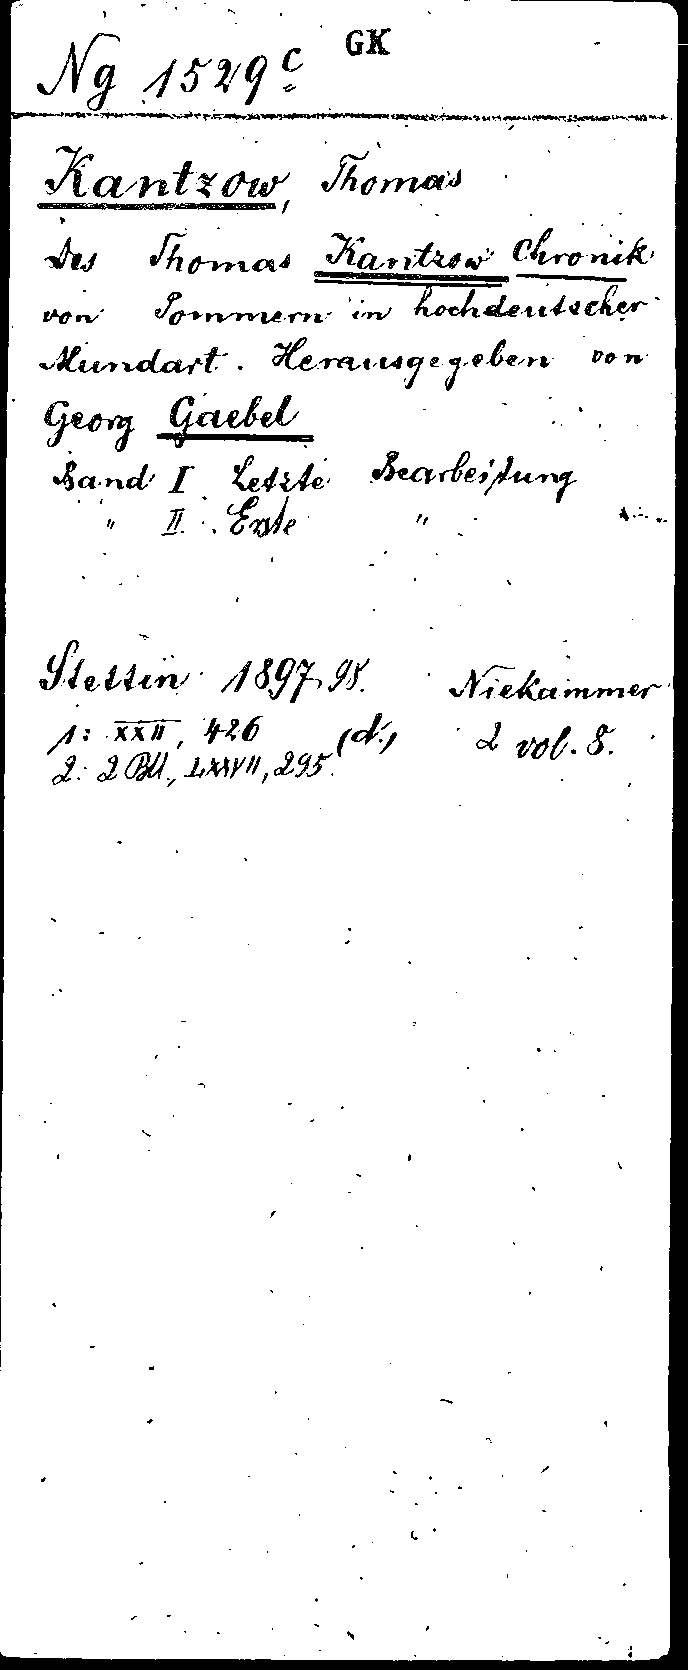 GK
Ng 1529c
Kantzow, Thomas
Des Thomas Kantzow Chronik
von Pommern in hochdeutscher
Mundart. Herausgegeben von
Georg Gaebel
Band I Letzte Bearbeitung
" II. Erste "
Stettin 1897-98. Niekammer
1: XXII, 426 (d.) 2 vol. 8.
2: 2 Bll., LXXVII, 295.